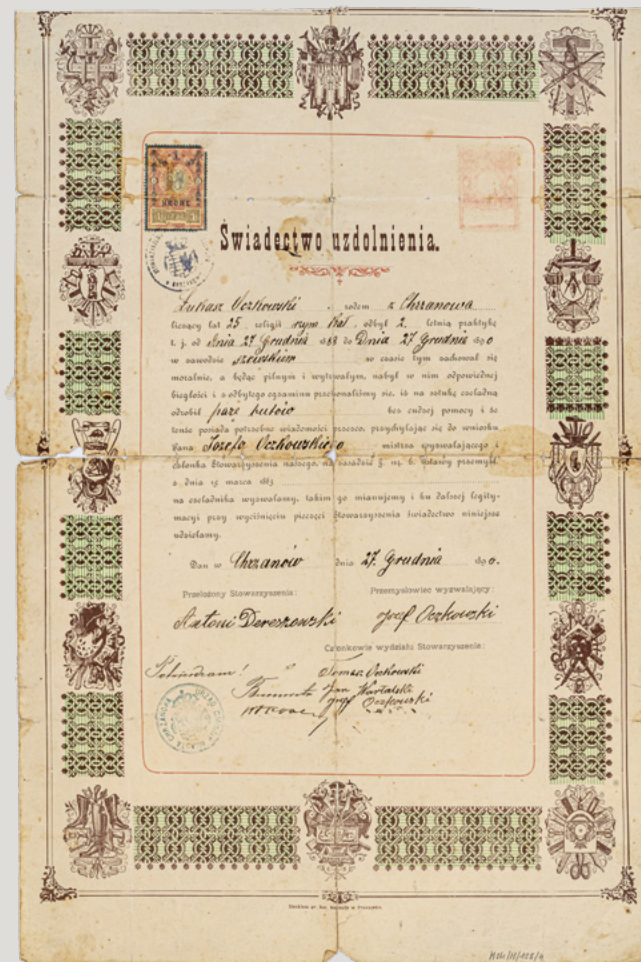 1
KRONE
Świadectwo uzdolnienia.
Łukasz Oczkowski rodem z Chrzanowa
liczący lat 25, religii rzym Kat. odbył 2. letnią praktykę
t. j. od dnia 27 Grudnia 888 do Dnia 27 Grudnia 890
w zawodzie szewskiem w czasie tym zachował się
moralnie, a będąc pilnym i wytrwałym, nabył w nim odpowiedniej
biegłości i z odbytego egzaminu przekonaliśmy się, iż na sztukę czeladną
odrobił parę butów bez cudzej pomocy i że
tenże posiada potrzebne wiadomości przeto, przychylając się do wniosku
Pana Józefa Oczkowskiego mistrza wyzwalającego i
członka Stowarzyszenia naszego, na zasadzie §. 14. b. Ustawy przemysł.
z dnia 15 marca 883
na czeladnika wyzwalamy, takim go mianujemy i ku dalszej legity-
macyi przy wyciśnięciu pieczęci Stowarzyszenia świadectwo niniejsze
udzielamy.
Dan w Chrzanów dnia 27. Grudnia 890.
Przełożony Stowarzyszenia: Przemysłowiec wyzwalający:
Antoni Dereszowski Józef Oczkowski
Członkowie wydziału Stowarzyszenia:
Tomasz Oczkowski
Jan
Józef Oczkowski